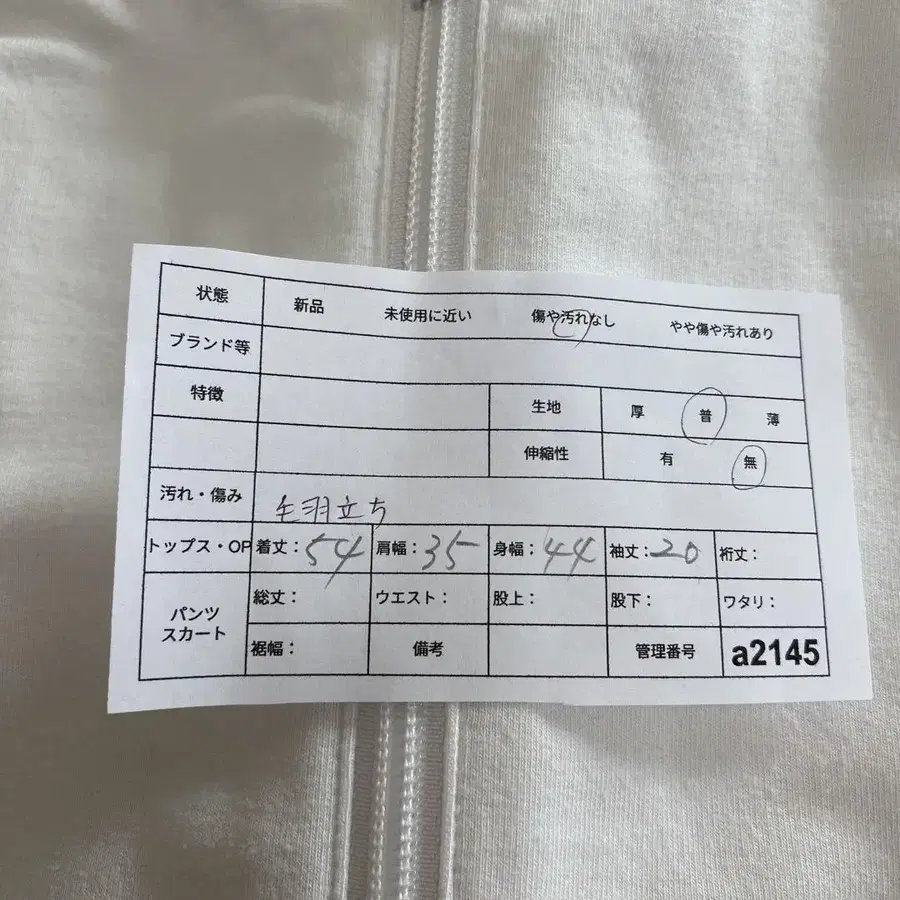 状態 新品 未使用に近い 傷や汚れなし やや傷や汚れあり
ブランド等
特徴 生地 厚 普 薄
伸縮性 有 無
汚れ・傷み 毛羽立ち
トップス・OP 着丈：54 肩幅：35 身幅：44 袖丈：20 裄丈：
パンツ スカート 総丈： ウエスト： 股上： 股下： ワタリ：
裾幅： 備考 管理番号 a2145